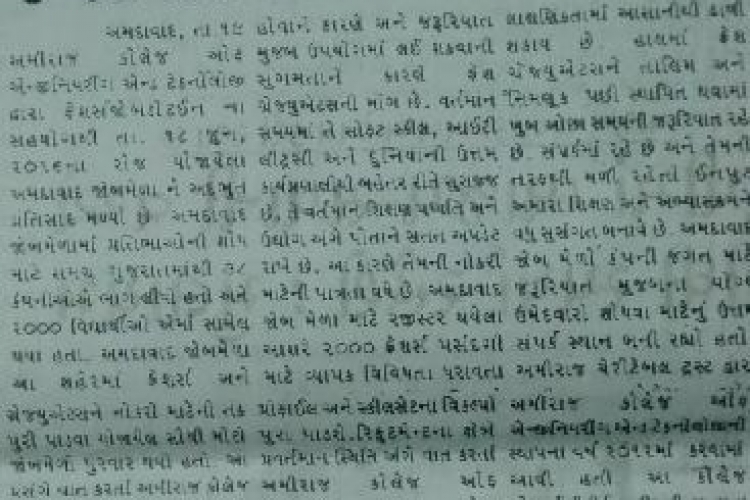 અમદાવાદ, તા ૧૯
અમીરાજ કોલેજ ઓફ
એન્જીનિયરીંગ એન્ડ ટેકનોલોજી
દ્વારા ફ્રેશર્સજોબડોટઈન ના
સહયોગથી તા. ૧૮ જુન,
૨૦૧૬ના રોજ યોજાયેલા
અમદાવાદ જોબમેળા ને અદભુત
પ્રતિસાદ મળ્યો છે. અમદાવાદ
જોબમેળામાં પ્રતિભાઓની શોધ
માટે સમગ્ર ગુજરાતમાંથી ૩૮
કંપનીઓએ ભાગ લીધો હતો અને
૨૦૦૦ વિદ્યાર્થીઓ એમાં સામેલ
થયા હતા. અમદાવાદ જોબમેળા
આ શહેરમાં ફ્રેશર્સ અને
ગ્રેજ્યુએટ્સને નોકરી માટેની તક
પુરી પાડવા યોજાયેલ સૌથી મોટો
જોબમેળો પુરવાર થયો હતો. આ
પ્રસંગે વાત કરતાં અમીરાજ કોલેજ
હોવાને કારણે અને જરૂરિયાત
મુજબ ઉપયોગમાં લઈ શકવાની
સુગમતાને કારણે ફ્રેશ
ગ્રેજ્યુએટ્સની માંગ છે. વર્તમાન
સમયમાં તે સોફ્ટ સ્કીલ, આઈટી
લીટ્રસી અને દુનિયાની ઉત્તમ
કાર્યપ્રણાલીથી બહેતર રીતે સુસજ્જ
છે. તે વર્તમાન શિક્ષણ પધ્ધતિ અને
ઉદ્યોગ અંગે પોતાને સતત અપડેટ
રાખે છે. આ કારણે તેમની નોકરી
માટેની પાત્રતા વધે છે. અમદાવાદ
જોબ મેળા માટે રજીસ્ટર થયેલા
આશરે ૨૦૦૦ ફ્રેશર્સ પસંદગી
માટે વ્યાપક વિવિધતા ધરાવતા
પ્રોફાઈલ અને સ્કીલસેટના વિકલ્પો
પુરા પાડશે. રિક્રુટમેન્ટના ક્ષેત્રે
પ્રવર્તમાન સ્થિતિ અંગે વાત કરતાં
અમીરાજ કોલેજ ઓફ
લાક્ષણિકતામાં આસાનીથી ઢાળી
શકાય છે. હાલમાં ફ્રેશ
ગ્રેજ્યુએટ્સને તાલિમ અને
નિમણૂક પછી સ્થાપિત થવામાં
ખુબ ઓછા સમયની જરૂરિયાત રહે
છે. સંપર્કમાં રહે છે અને તેમની
તરફથી મળી રહેતાં ઈનપુટ
અમારા શિક્ષણ અને અભ્યાસક્રમને
વધુ સુસંગત બનાવે છે. અમદાવાદ
જોબ મેળો કંપની જગત માટે
જરૂરિયાત મુજબના યોગ્ય
ઉમેદવારો શોધવા માટેનું ઉત્તમ
સંપર્ક સ્થાન બની રહ્યો હતો
અમીરાજ ચેરીટેબલ ટ્રસ્ટ દ્વારા
અમીરાજ કોલેજ ઓફ
એન્જીનિયરીંગ એન્ડ ટેકનોલોજીની
સ્થાપના વર્ષ ૨૦૧૨માં કરવામાં
આવી હતી આ કોલેજ